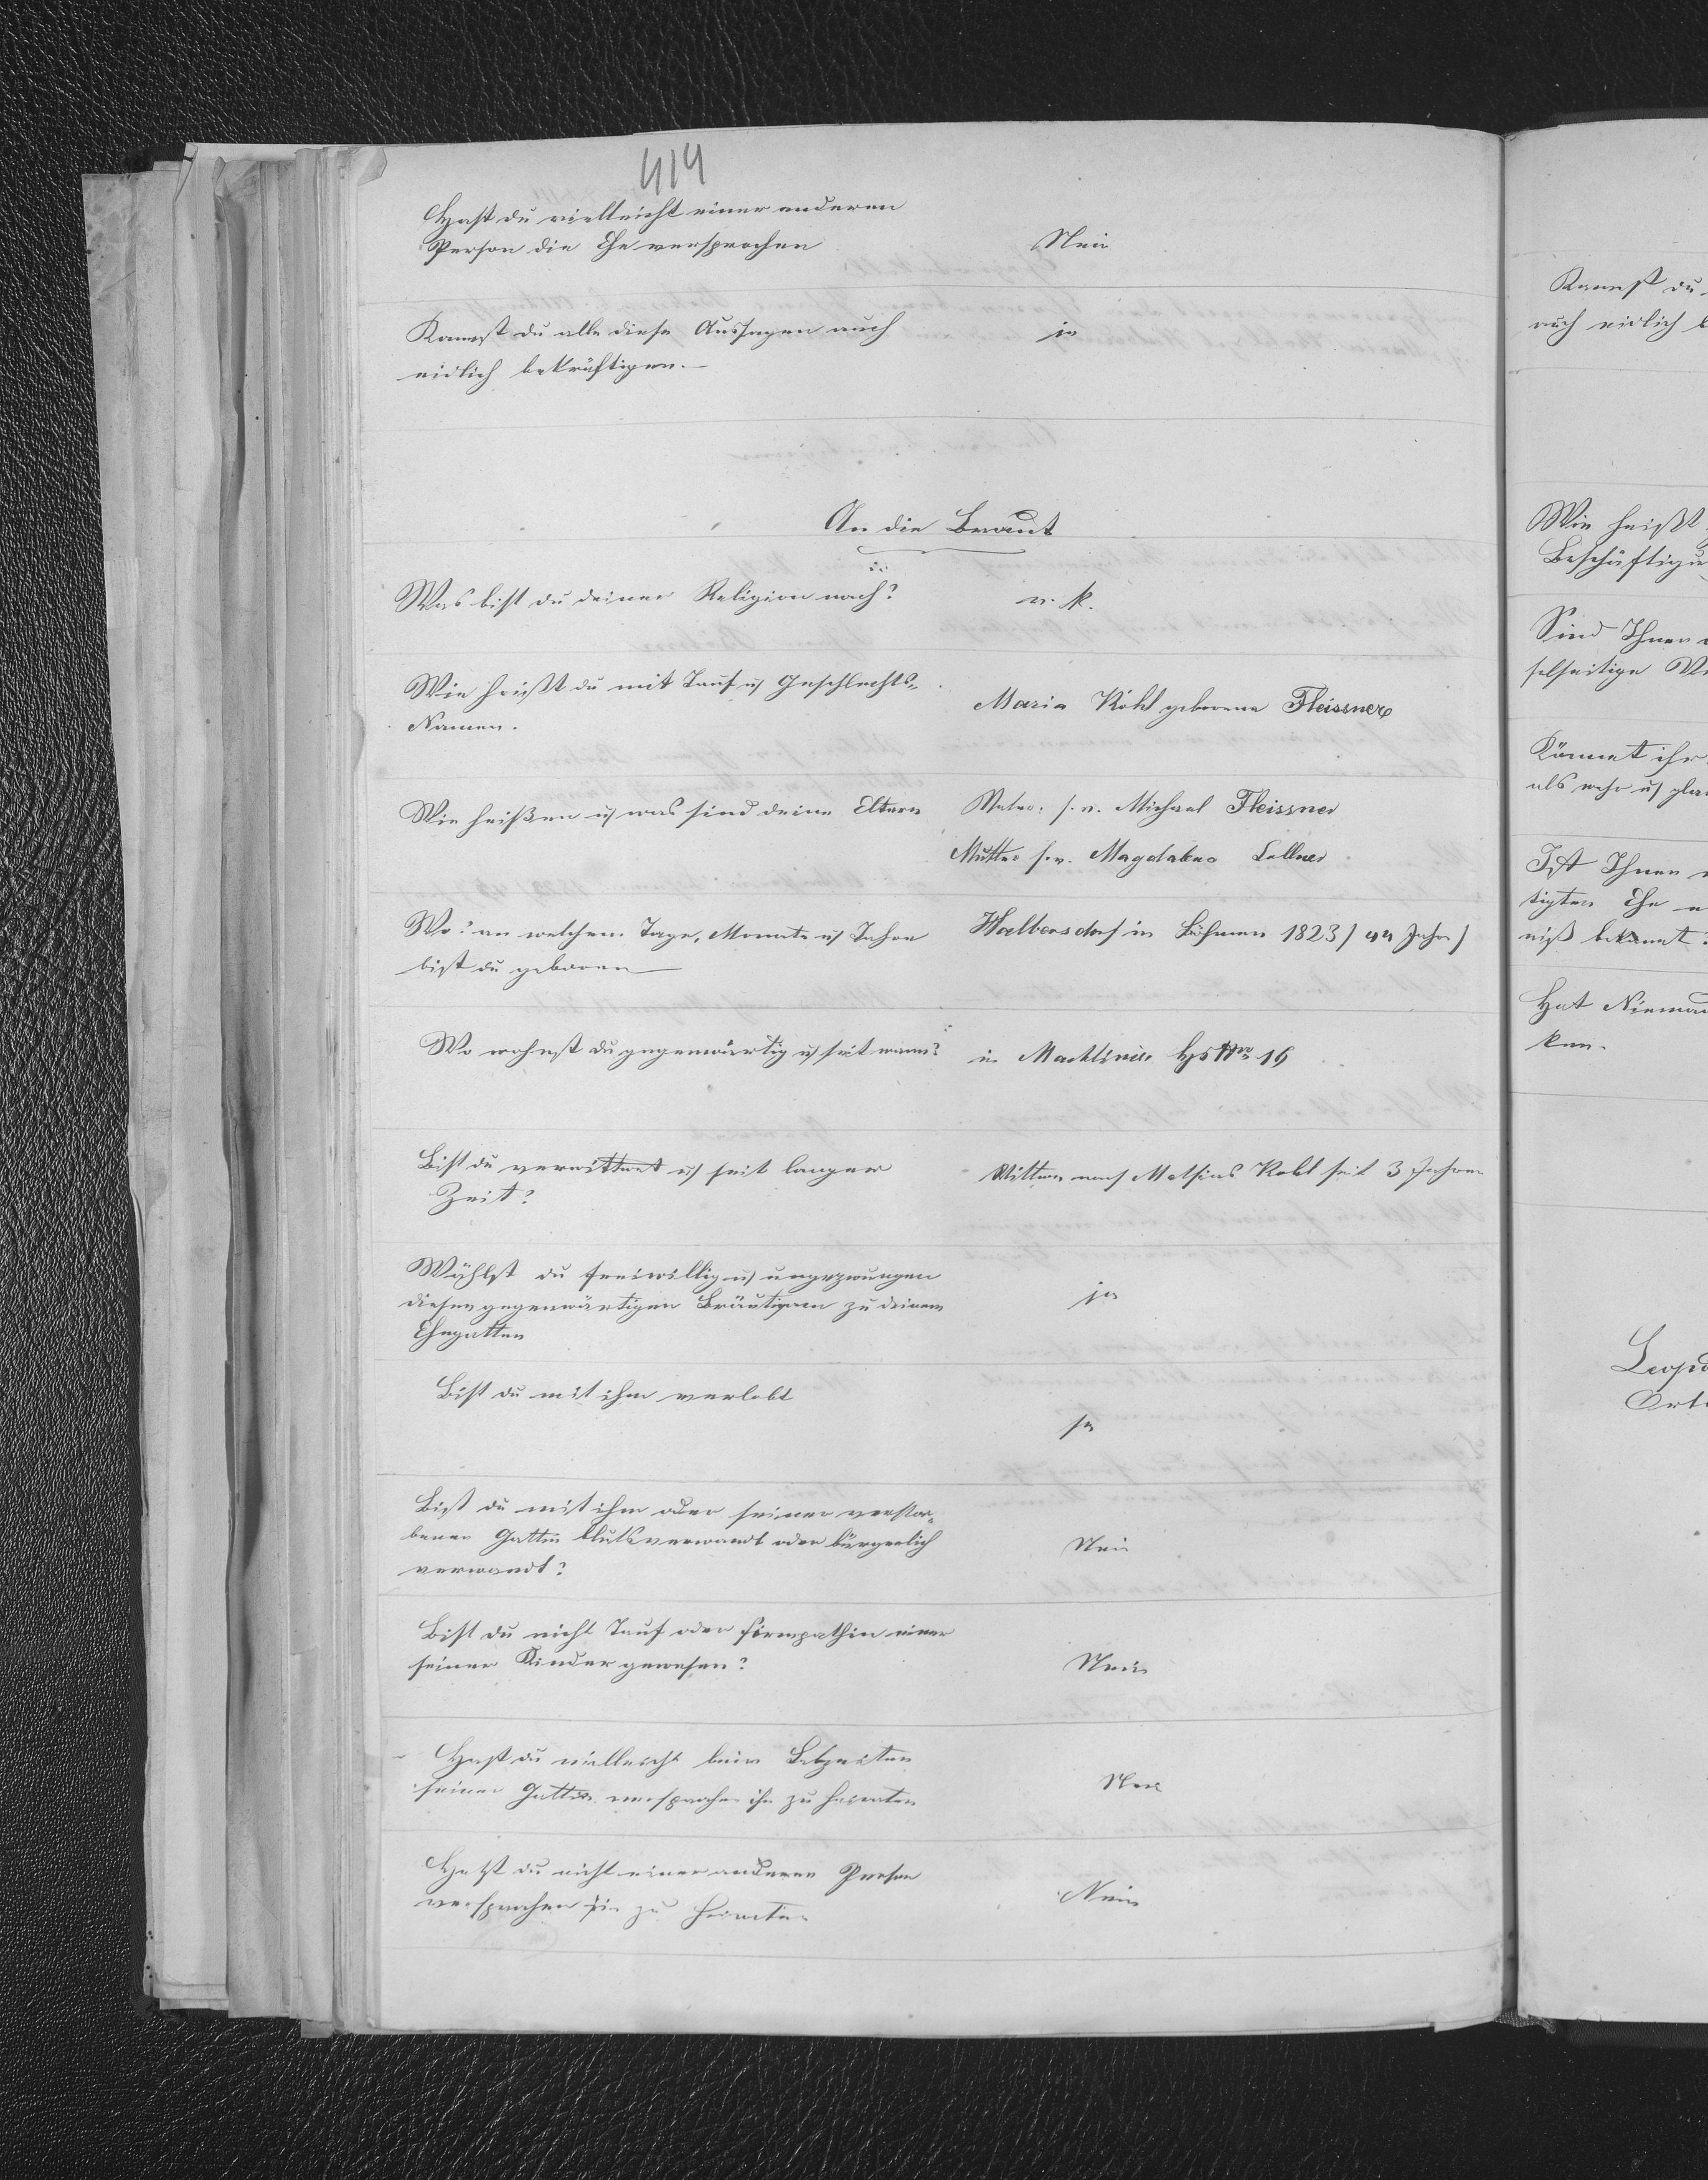 414
Hast du vielleicht einer anderen
Person die Ehe versprochen
Nein
Kannst du alle diese Aussagen auch
eidlich bekräftigen.
ja
An die Braut
Was bist du deiner Religion nach?
r. k.
Wie heißt du mit Tauf u Geschlechts-
Namen.
Maria Köhl geborene Fleissner
Wie heißen u was sind deine Eltern
Vater: s. v. Michael Fleissner
Mutter s. v. Magdalena Lellner
Wo? an welchem Tage, Monate u Jahre
bist du geboren
Halbersdorf in Böhmen 1823 / 44 Jahr /
Wo wohnst du gegenwärtig u seit wann?
in Machliniec Hs Nro 16
Bist du verwittwet u seit langer
Zeit?
Wittwe nach Mathias Kohl seit 3 Jahren
Wählst du freiwillig u ungezwungen
diesen gegenwärtigen Bräutigam zu deinem
Ehegatten
ja
Bist du mit ihm verlobt
ja
Bist du mit ihm oder seiner verstor-
benen Gattin blutsverwandt oder bürgerlich
verwandt?
Nein
Bist du nicht Tauf oder Firmpathin einer
seiner Kinder gewesen?
Nein
Hast du vielleicht beim Lebzeiten
seiner Gattin versprochen ihn zu heiraten
Nein
Hast du nicht einer anderen Person
versprochen sie zu heiraten
Nein
Kannst du
auch eidlich b
Wie heißt
Beschäftigu
Sind Ihnen
selseitige Ve
Könnet ihr
als wahr u gla
Ist Ihnen
tigten Ehe
niß bekannt?
Hat Nieman
ken.
Leopo
Orts